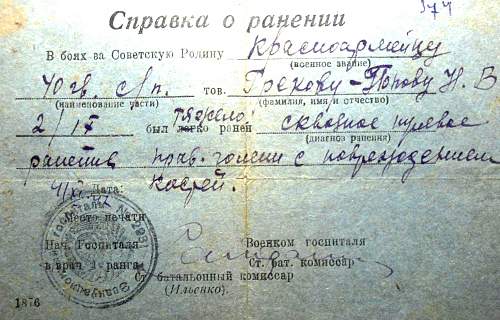 174
Справка о ранении
В боях за Советскую Родину красноармейцу
(военное звание)
40 гв. с/п. тов. Грекову-Попову Н. В
(наименование части) (фамилия, имя и отчество)
2/IX был тяжело легко ранен сквозное пулевое
(диагноз ранения)
ранение прав. голени с повреждением
костей.
Дата:
Место печати
Нач. Госпиталя Военком госпиталя
и врач 1 ранга Ст. бат. комиссар
Ст. батальонный комиссар
(Ильенко).
1876